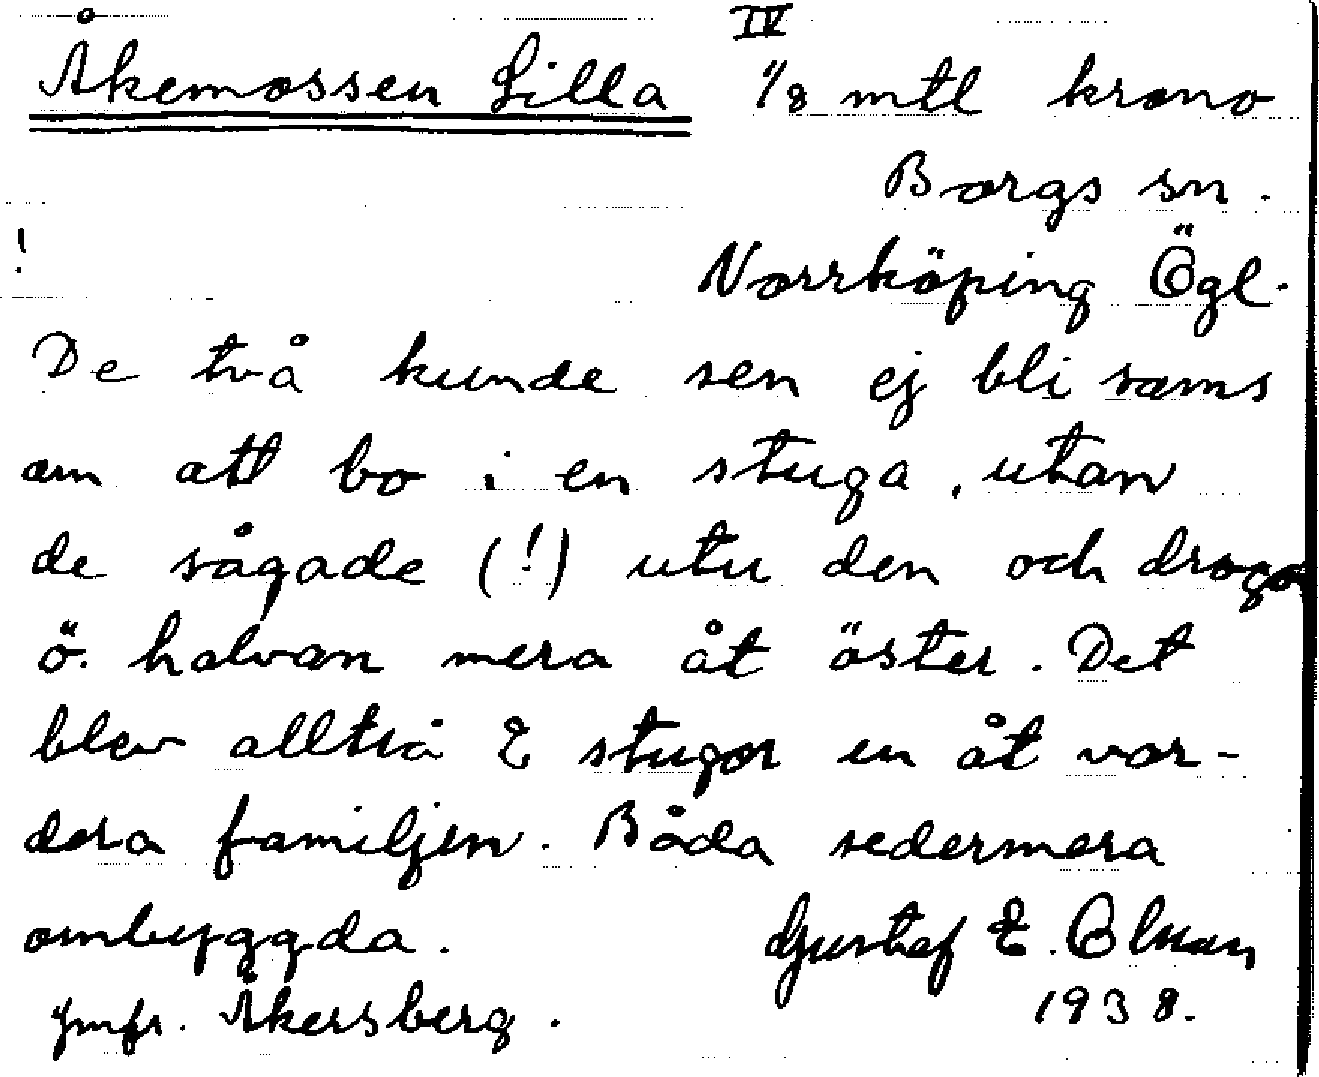 IV
Åkemossen Lilla 1/8 mtl krono
Borgs sn.
!
Norrköping Ögl.
De två kunde sen ej bli sams
om att bo i en stuga, utan
de sågade (!) utu den och drogo
ö. halvan mera åt öster. Det
blev alltså 2 stugor en åt var-
dera familjen. Båda sedermera
ombyggda. Gustaf E.
jmfr. Åkersberg. 1938.